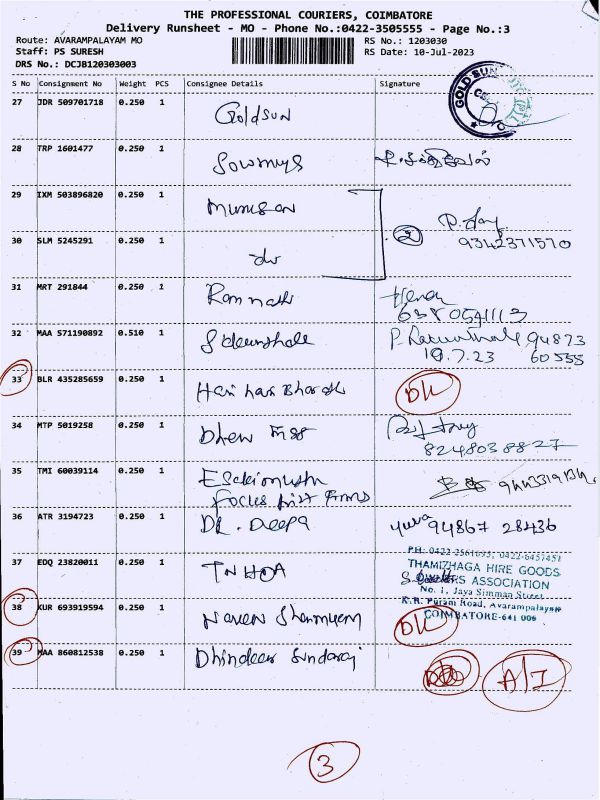 THE PROFESSIONAL COURIERS, COIMBATORE
Delivery Runsheet - MO - Phone No.:0422-3505555 - Page No.:3
Route: AVARAMPALAYAM MO RS No.: 1203030
Staff: PS SURESH RS Date: 10-Jul-2023
DRS No.: DCJB120303003
S No Consignment No Weight PCS Consignee Details Signature
27 JDR 509701718 0.250 1 Goldsun GOLD SUN
28 TRP 1601477 0.250 1 Sowmiya
29 IXM 503896820 0.250 1 Murugan
30 SLM 5245291 0.250 1 do 2 9342371570
31 MRT 291844 0.250 1 Ramnath 6380541113
32 MAA 571190892 0.510 1 94873
19.7.23 60555
33 BLR 435285659 0.250 1 Hari hari Bharath DL
34 MTP 5019258 0.250 1 8248038827
35 TMI 60039114 0.250 1 Esakimuthu
36 ATR 3194723 0.250 1 DR. Deepa yuva 94867 28436
PH: 0422-2561695, 0422-6457451
37 EDQ 23820011 0.250 1 TNHOA THAMIZHAGA HIRE GOODS
ASSOCIATION
No. 1, Jaya Simman Street
38 KUR 693919594 0.250 1 Naveen Shanmugam K.R. Puram Road, Avarampalayam
COIMBATORE-641 006
DL
39 MAA 860812538 0.250 1 A/I
3